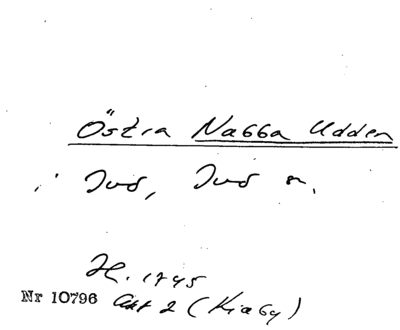 Östra Nabba Udden
i Ivö, Ivö sn.
H. 1745
Nr 10796 Akt 2 (Kiaby)